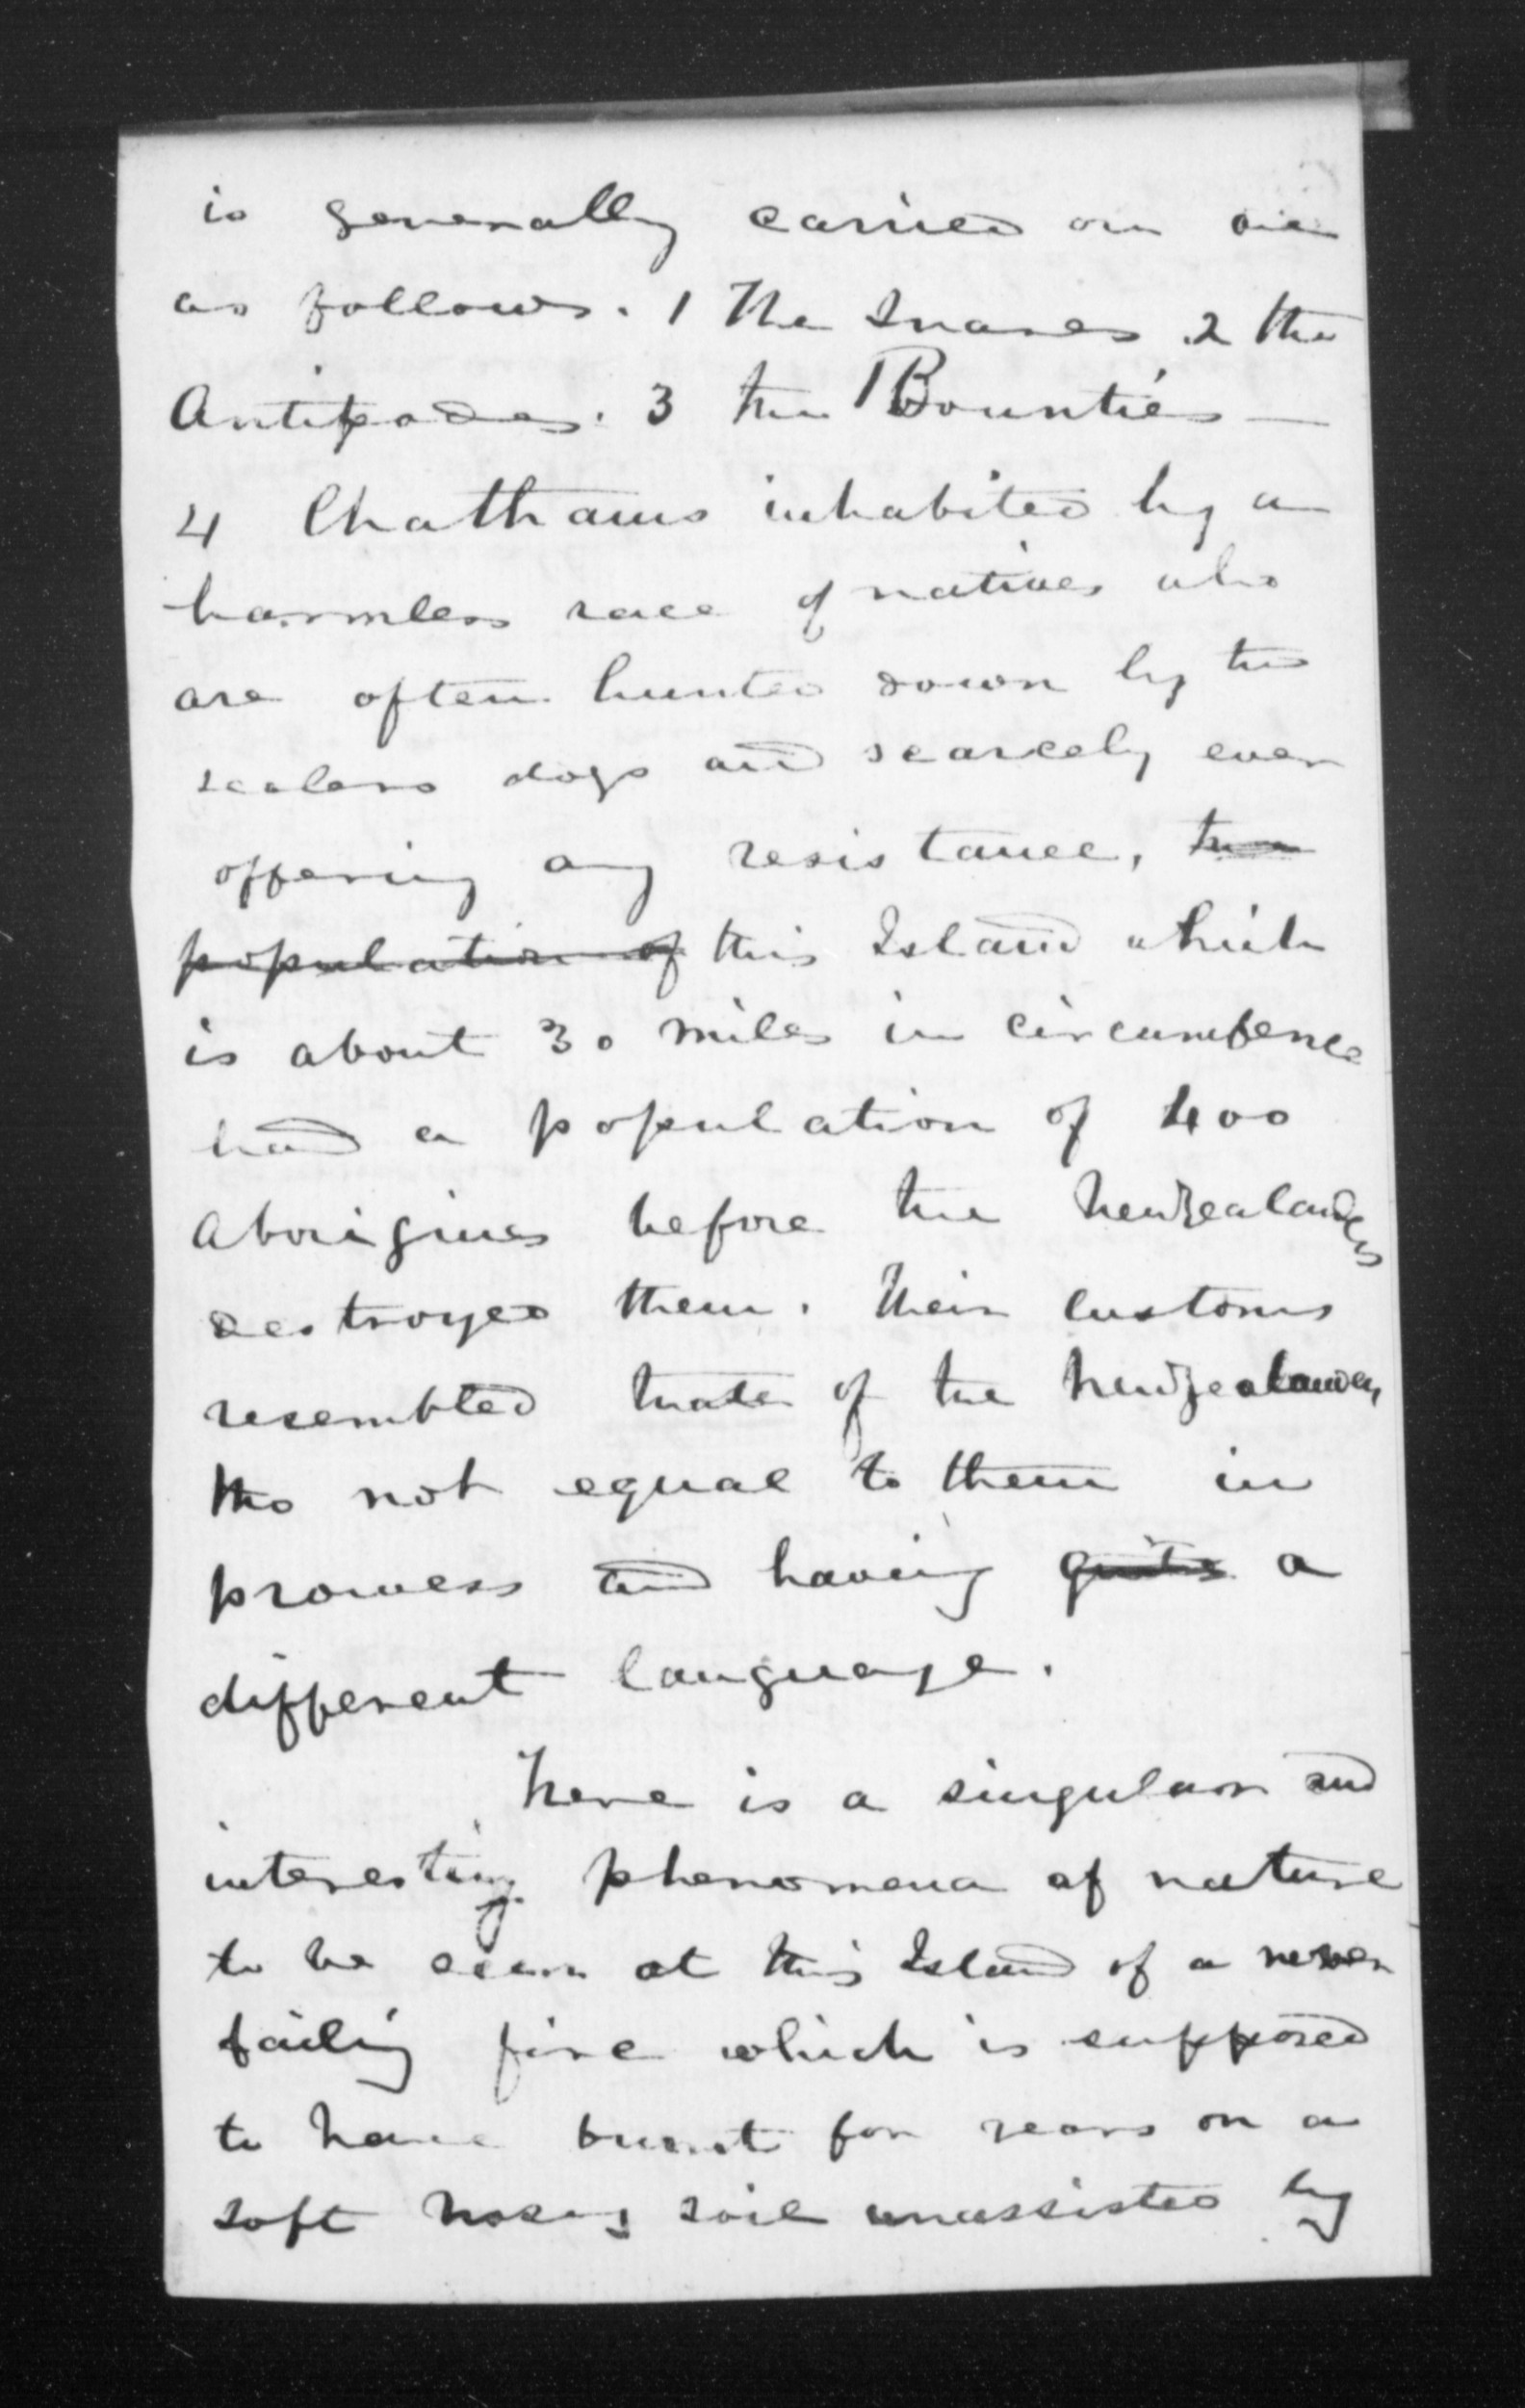 is generally carried on are
as follows. 1 The Snares 2 the
Antipodes. 3 the Bounties —
4 Chathams inhabited by a
harmless race of natives who
are often hunted down by the
sealers dogs and scarcely ever
offering any resistance, the
population of this Island which
is about 30 miles in circumference
had a population of 400
Aborigines before the NewZealanders
destroyed them. Their customs
resembled those of the NewZealanders
tho not equal to them in
prowess and having quite a
different language.
There is a singular and
interesting phenomena of nature
to be seen at this Island of a never
failing fire which is supposed
to have burnt for years on a
soft soil unassisted by